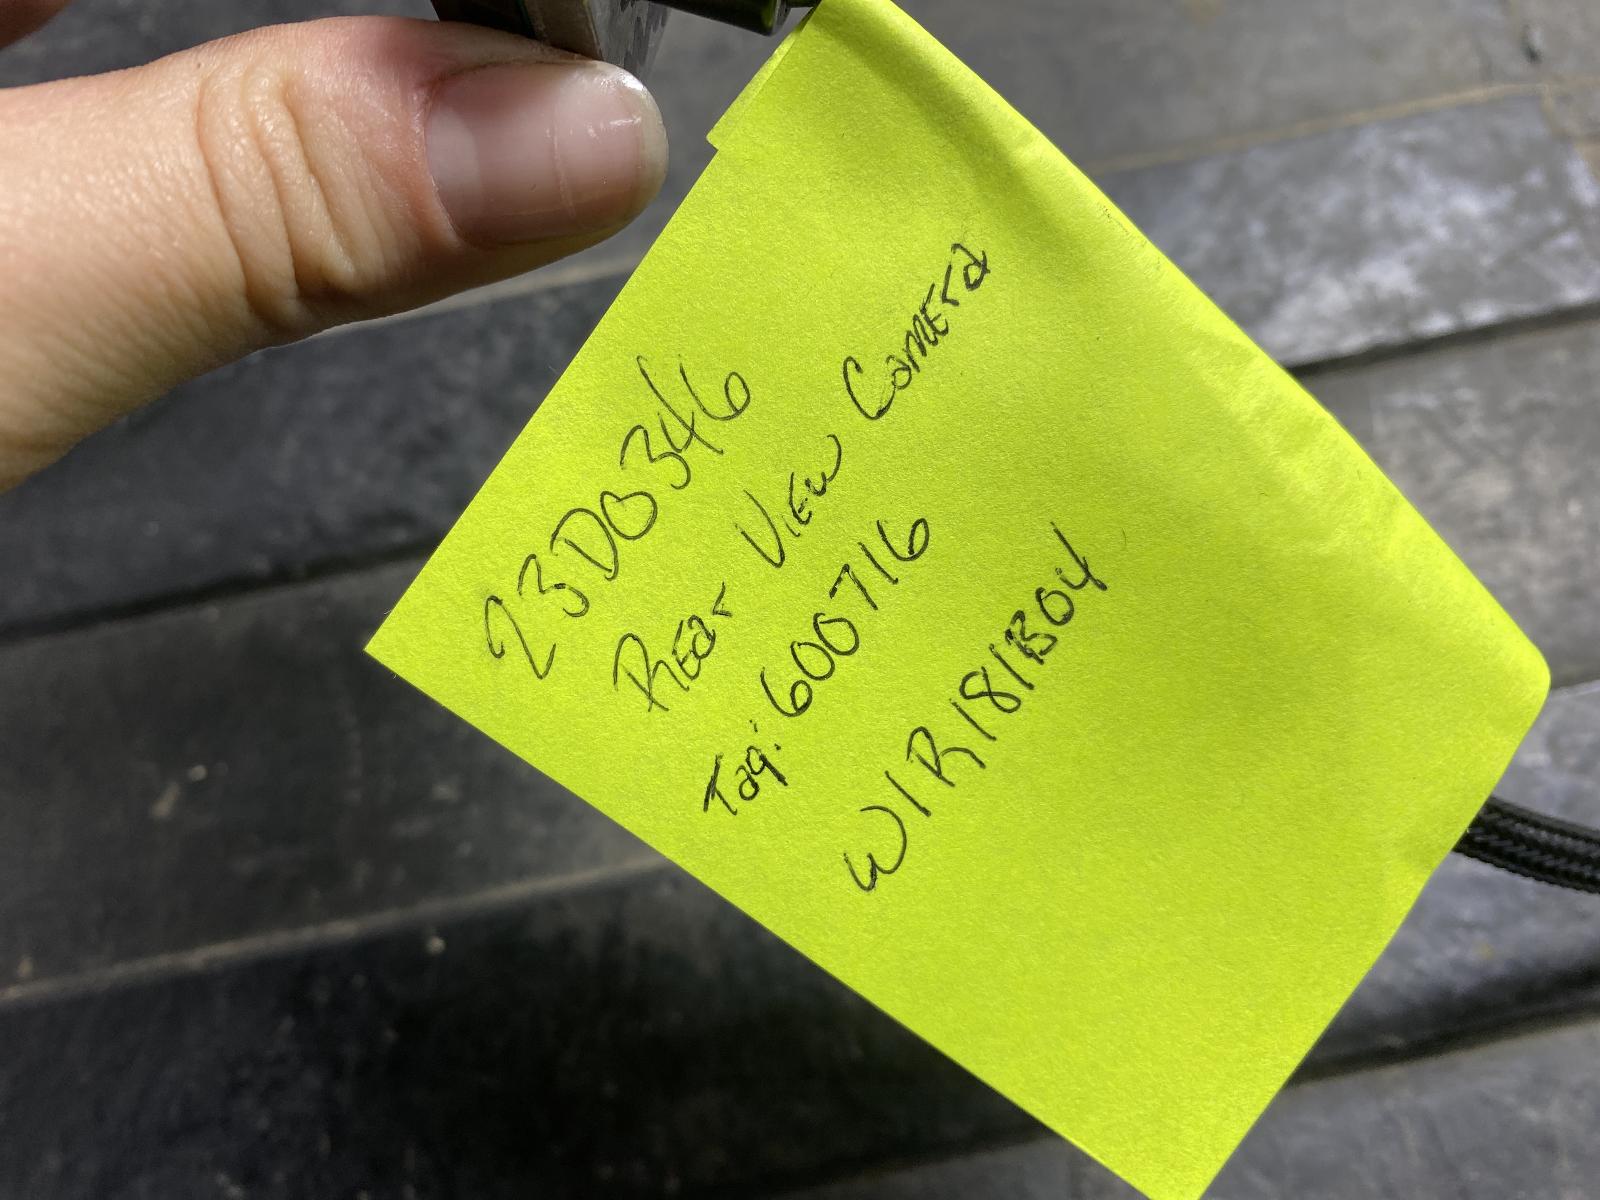 23DB346
Rear View Camera
Tag: 600716
W1R181B04